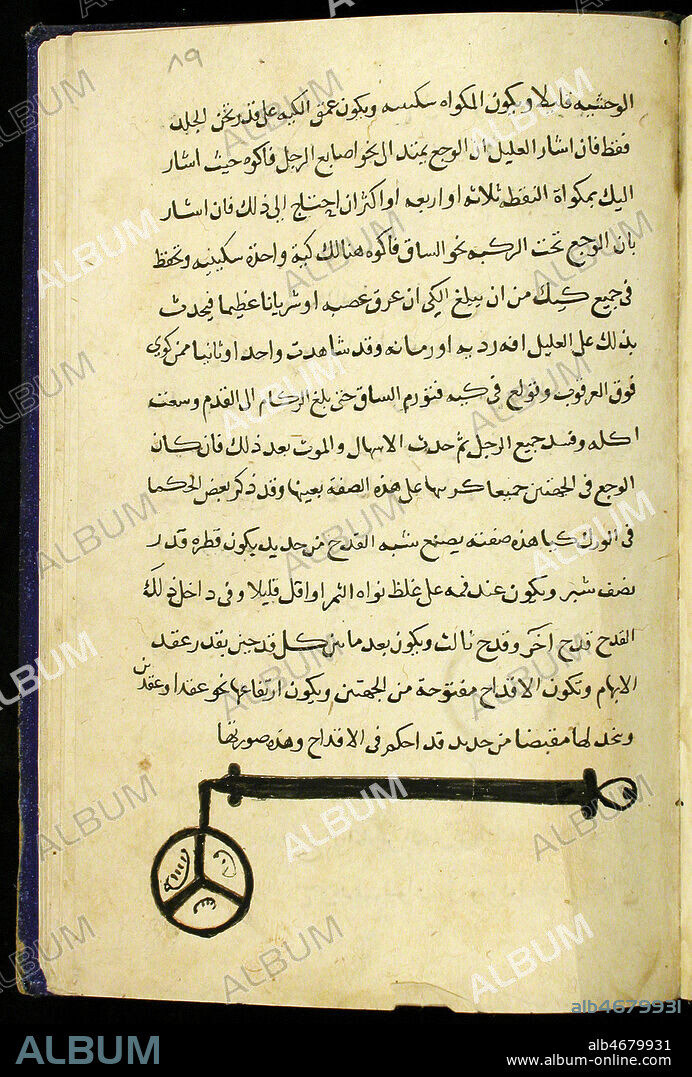 ٨٩
الوحشيه قليلا ويكون المكواه سكينيه ويكون عمق الكيه على قدر ثخن الجلد
فقط فان اشار العليل ان الوجع يمتد الى نحو اصابع الرجل فاكوه حيث اشار
اليك بمكواة النقطه ثلاثه او اربعه او اكثر ان احتاج الى ذلك فان اشار
بان الوجع تحت الركبه نحو الساق فاكوه هنالك كية واحدة سكينيه وتحفظ
فى جميع كيك من ان يبلغ الكى ان عرق عصبه او شريانا عظيما فيحدث
بذلك على العليل افه رديه او زمانه وقد شاهدت واحد او ثانيا ممن كوى
فوق العرقوب وتولع فى كيه فتورم الساق حتى بلغ الركام الى القدم وسعت
اكله وفسد جميع الرجل ثم حدث الاسهال والموت بعد ذلك فان كان
الوجع فى الجهتين جميعا كويتها على هذه الصفة بعينها وقد ذكر بعض الحكما
فى الورك كيا هذه صفته يصنع شبه القدح من حديد يكون قطره قدر
نصف شبر ويكون عند فمه على غلظ نواه التمر او اقل قليلا وفى داخل ذلك
القدح قدح اخر وقدح ثالث ويكون بعد ما بين كل قدحين بقدر عقد
الابهام وتكون الاقداح مفتوحة من الجهتين ويكون ارتفاعها نحو عقدا وعقدين
وتخذ لها مقبضا من حديد قد احكم فى الاقداح وهذه صورتها
ALBUM
alb4679931
ALBUM
alb4679931
www.album-online.com